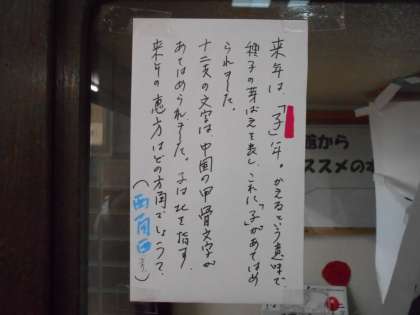 来年は、「子」年。かえるという意味で
種子の芽ばえを表し、これに「子」があてはめ
られました。
十二支の文字は、中国の甲骨文字が
あてはめられました。子は北を指す。
来年の恵方はどの方角でしょう？
館から
ススメの本